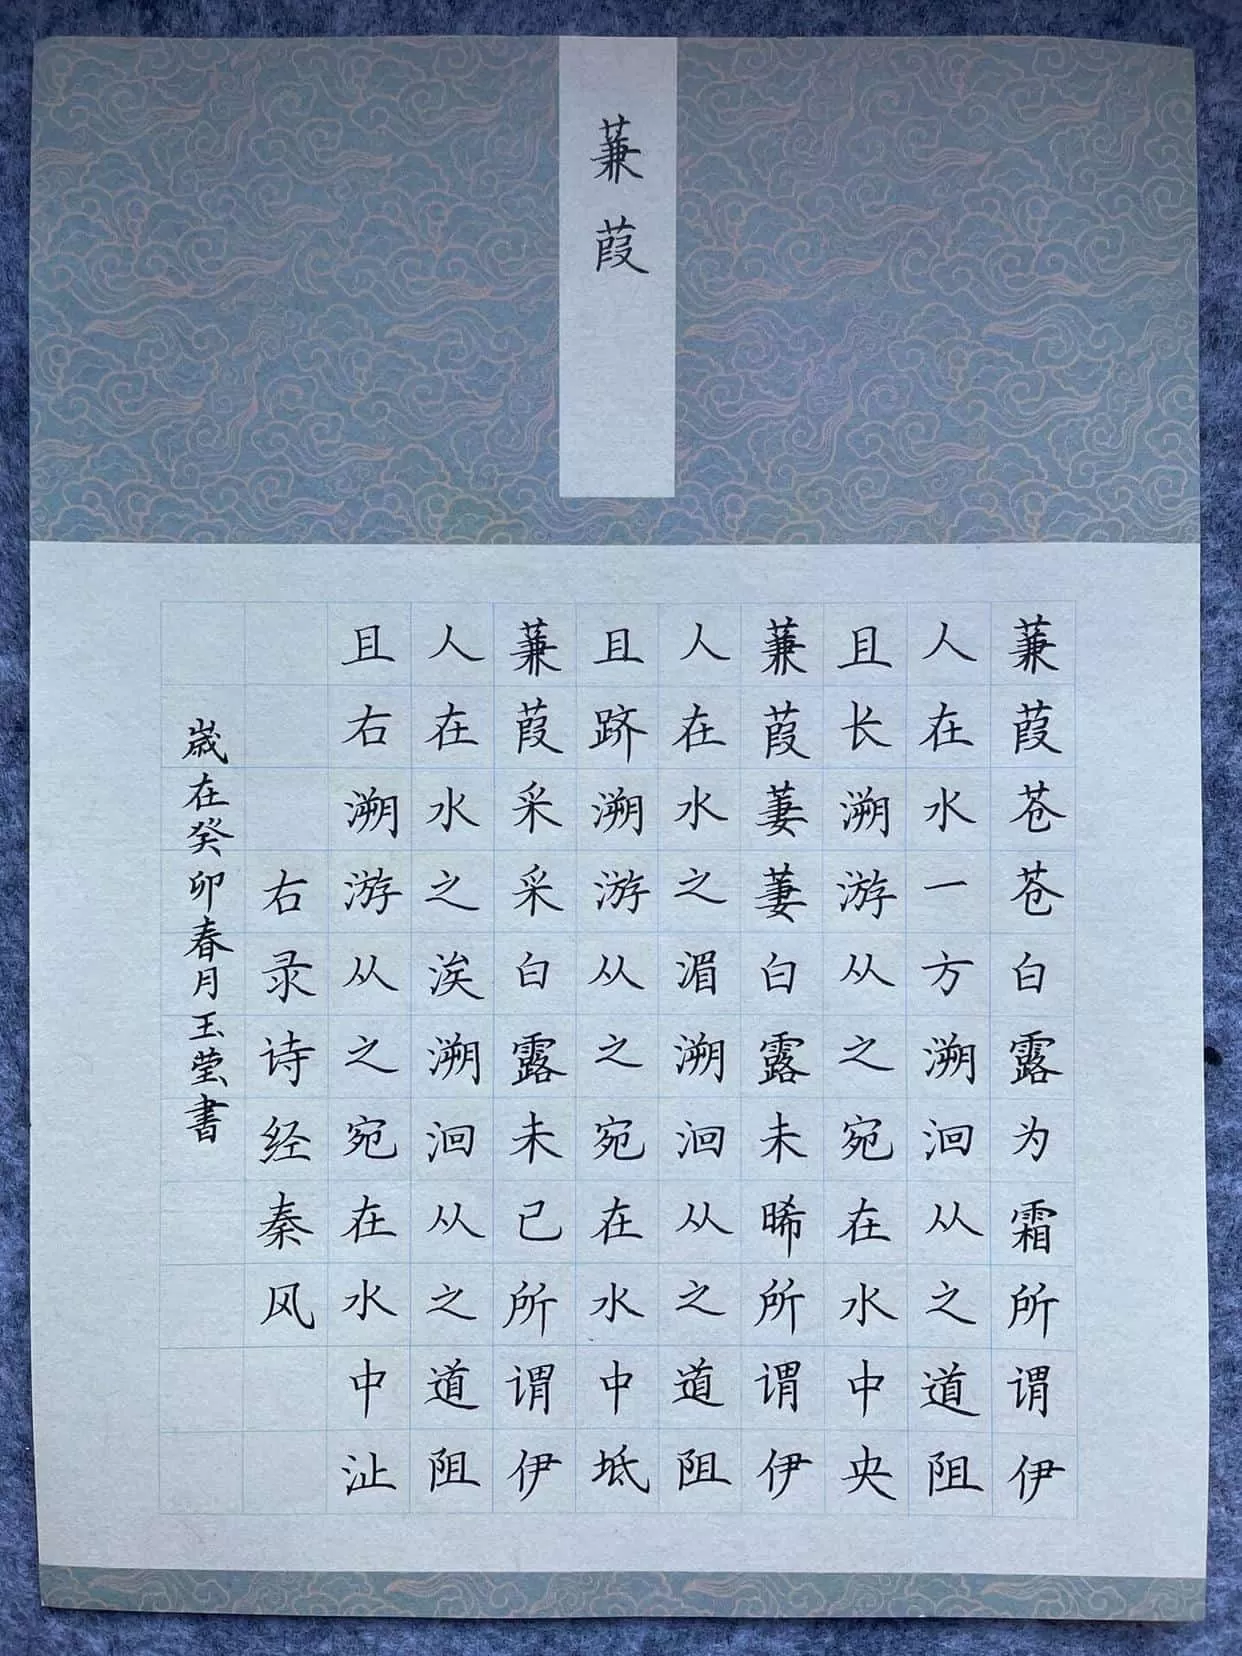 蒹葭
蒹葭苍苍白露为霜所谓伊
人在水一方溯洄从之道阻
且长溯游从之宛在水中央
蒹葭萋萋白露未晞所谓伊
人在水之湄溯洄从之道阻
且跻溯游从之宛在水中坻
蒹葭采采白露未已所谓伊
人在水之涘溯洄从之道阻
且右溯游从之宛在水中沚
右录诗经秦风
岁在癸卯春月玉莹書